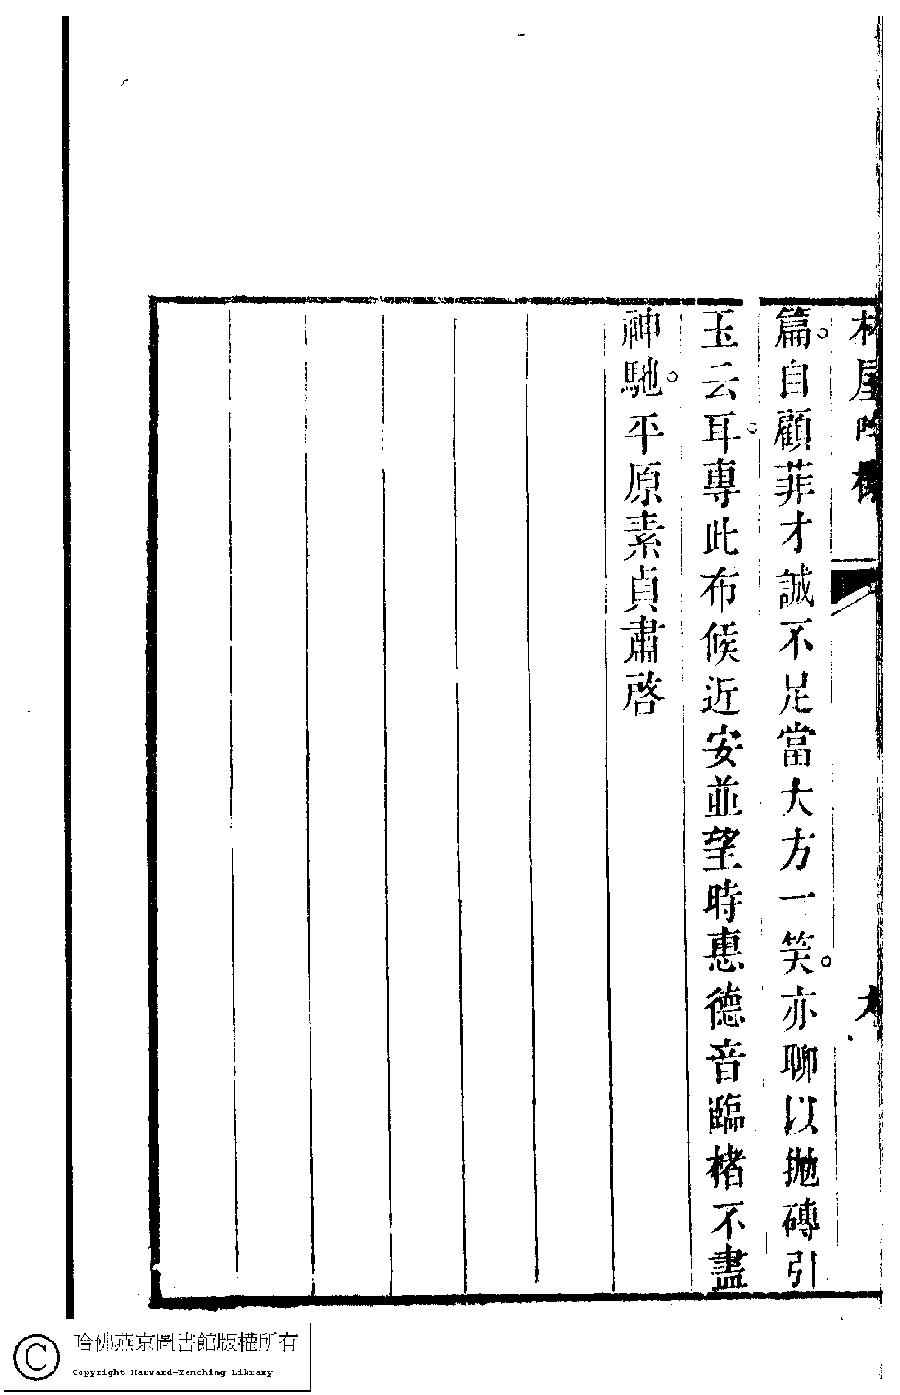 林屋吟榭
六
篇。自顧菲才誠不足當大方一笑。亦聊以拋磚引
玉云耳。專此布候近安並望時惠德音臨楮不盡
神馳。平原素貞肅啓
哈佛燕京圖書館版權所有
Copyright Harvard-Yenching Library